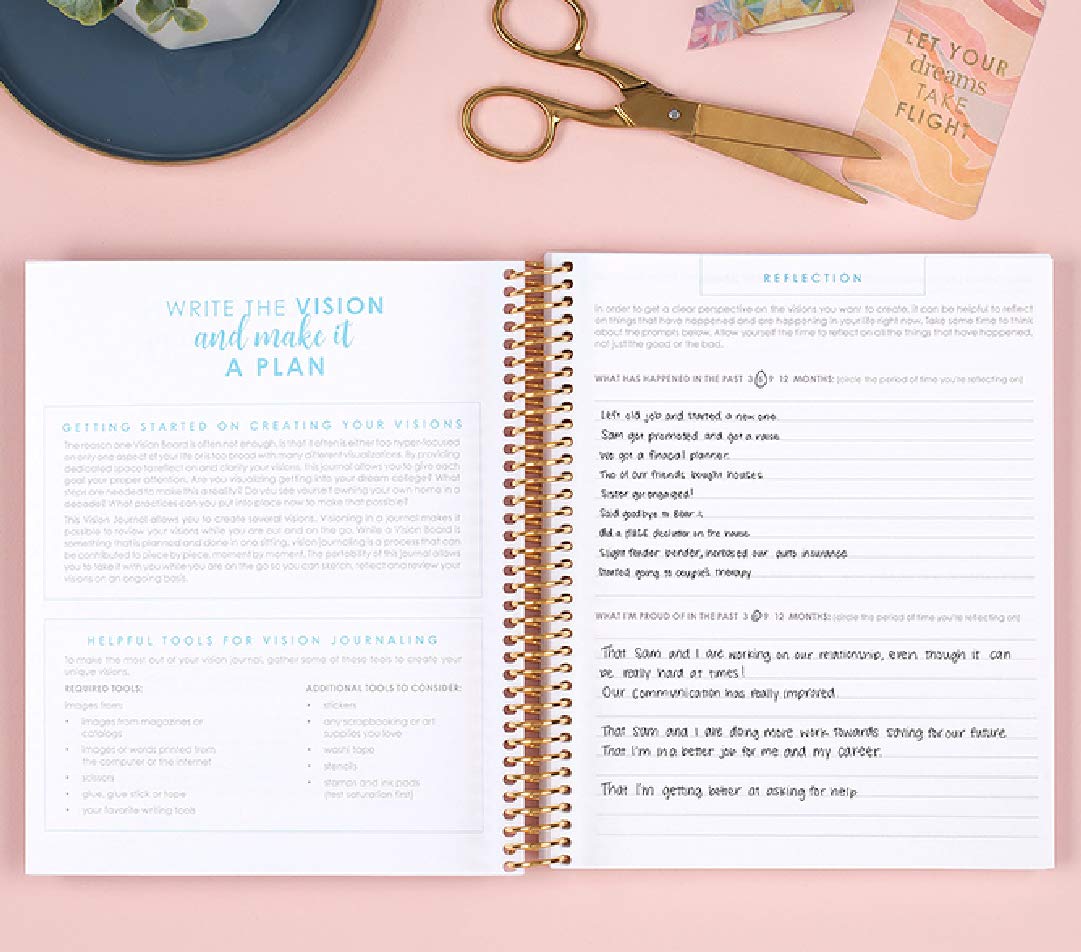 LET YOUR
dreams
TAKE
FLIGHT
WRITE THE VISION
and make it
A PLAN
GETTING STARTED ON CREATING YOUR VISIONS
The reason one Vision Board is often not enough, is that it often is either too hyper-focused
on only one aspect of your life or is too broad with many different visualizations. By providing
dedicated space to reflect on and clarify your visions, this journal allows you to give each
goal your proper attention. Are you visualizing getting into your dream college? What
steps are needed to make this a reality? Do you see yourself owning your own home in a
decade? What practices can you put into place now to make that possible?
This Vision Journal allows you to create several visions. Visioning in a journal makes it
possible to review your visions while you are out and on the go. While a Vision Board is
something that is planned and done in one sitting, vision journaling is a process that can
be contributed to piece by piece, moment by moment. The portability of this journal allows
you to take it with you while you are on the go so you can sketch, reflect and review your
visions on an ongoing basis.
HELPFUL TOOLS FOR VISION JOURNALING
To make the most out of your vision journal, gather some of these tools to create your
unique visions.
REQUIRED TOOLS:
Images from:
• images from magazines or
catalogs
• images or words printed from
the computer or the internet
• scissors
• glue, glue stick or tape
• your favorite writing tools
ADDITIONAL TOOLS TO CONSIDER:
• stickers
• any scrapbooking or art
supplies you love
• washi tape
• stencils
• stamps and ink pads
(test saturation first)
REFLECTION
In order to get a clear perspective on the visions you want to create, it can be helpful to reflect
on things that have happened and are happening in your life right now. Take some time to think
about the prompts below. Allow yourself the time to reflect on all the things that have happened,
not just the good or the bad.
WHAT HAS HAPPENED IN THE PAST 3 6 9 12 MONTHS: (circle the period of time you're reflecting on)
Left old job and started a new one.
Sam got promoted and got a raise.
We got a finacial planner.
Two of our friends bought houses.
Sister got engaged!
Said goodbye to Bear
did a declutter on the house
Slight fender bender, increased our auto insurance
Started going to couples therapy
WHAT I'M PROUD OF IN THE PAST 3 6 9 12 MONTHS: (circle the period of time you're reflecting on)
That Sam and I are working on our relationship, even though it can
be really hard at times!
Our communication has really improved.
That Sam and I are doing more work towards saving for our future.
That I'm in a better job for me and my career.
That I'm getting better at asking for help